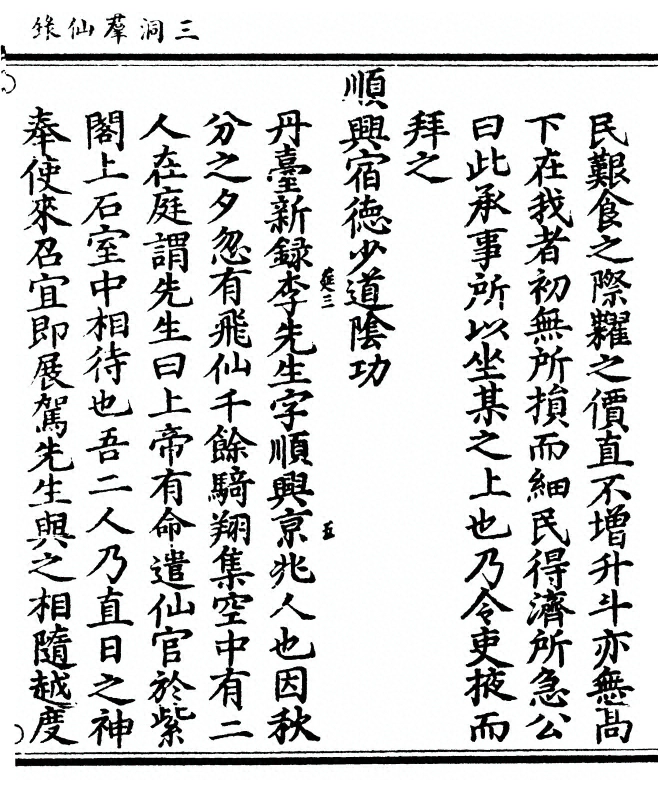 三洞羣仙錄
民艱食之際糶之價直不增升斗亦無高
下在我者初無所損而細民得濟所急公
曰此承事所以坐某之上也乃令吏掖而
拜之
順興宿德少道陰功
丹臺新録李先生字順興京兆人也因秋
分之夕忽有飛仙千餘騎翔集空中有二
人在庭謂先生曰上帝有命遣仙官於紫
閣上石室中相待也吾二人乃直日之神
奉使來召宜即展駕先生與之相隨越度
筵三
五